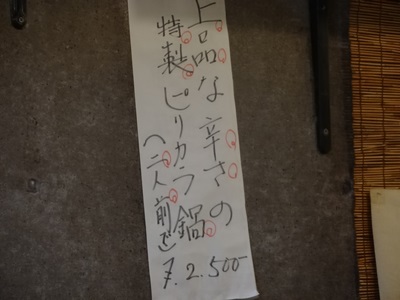 上品な辛さの
特製ピリカラ鍋
(二人前で)
¥2.500